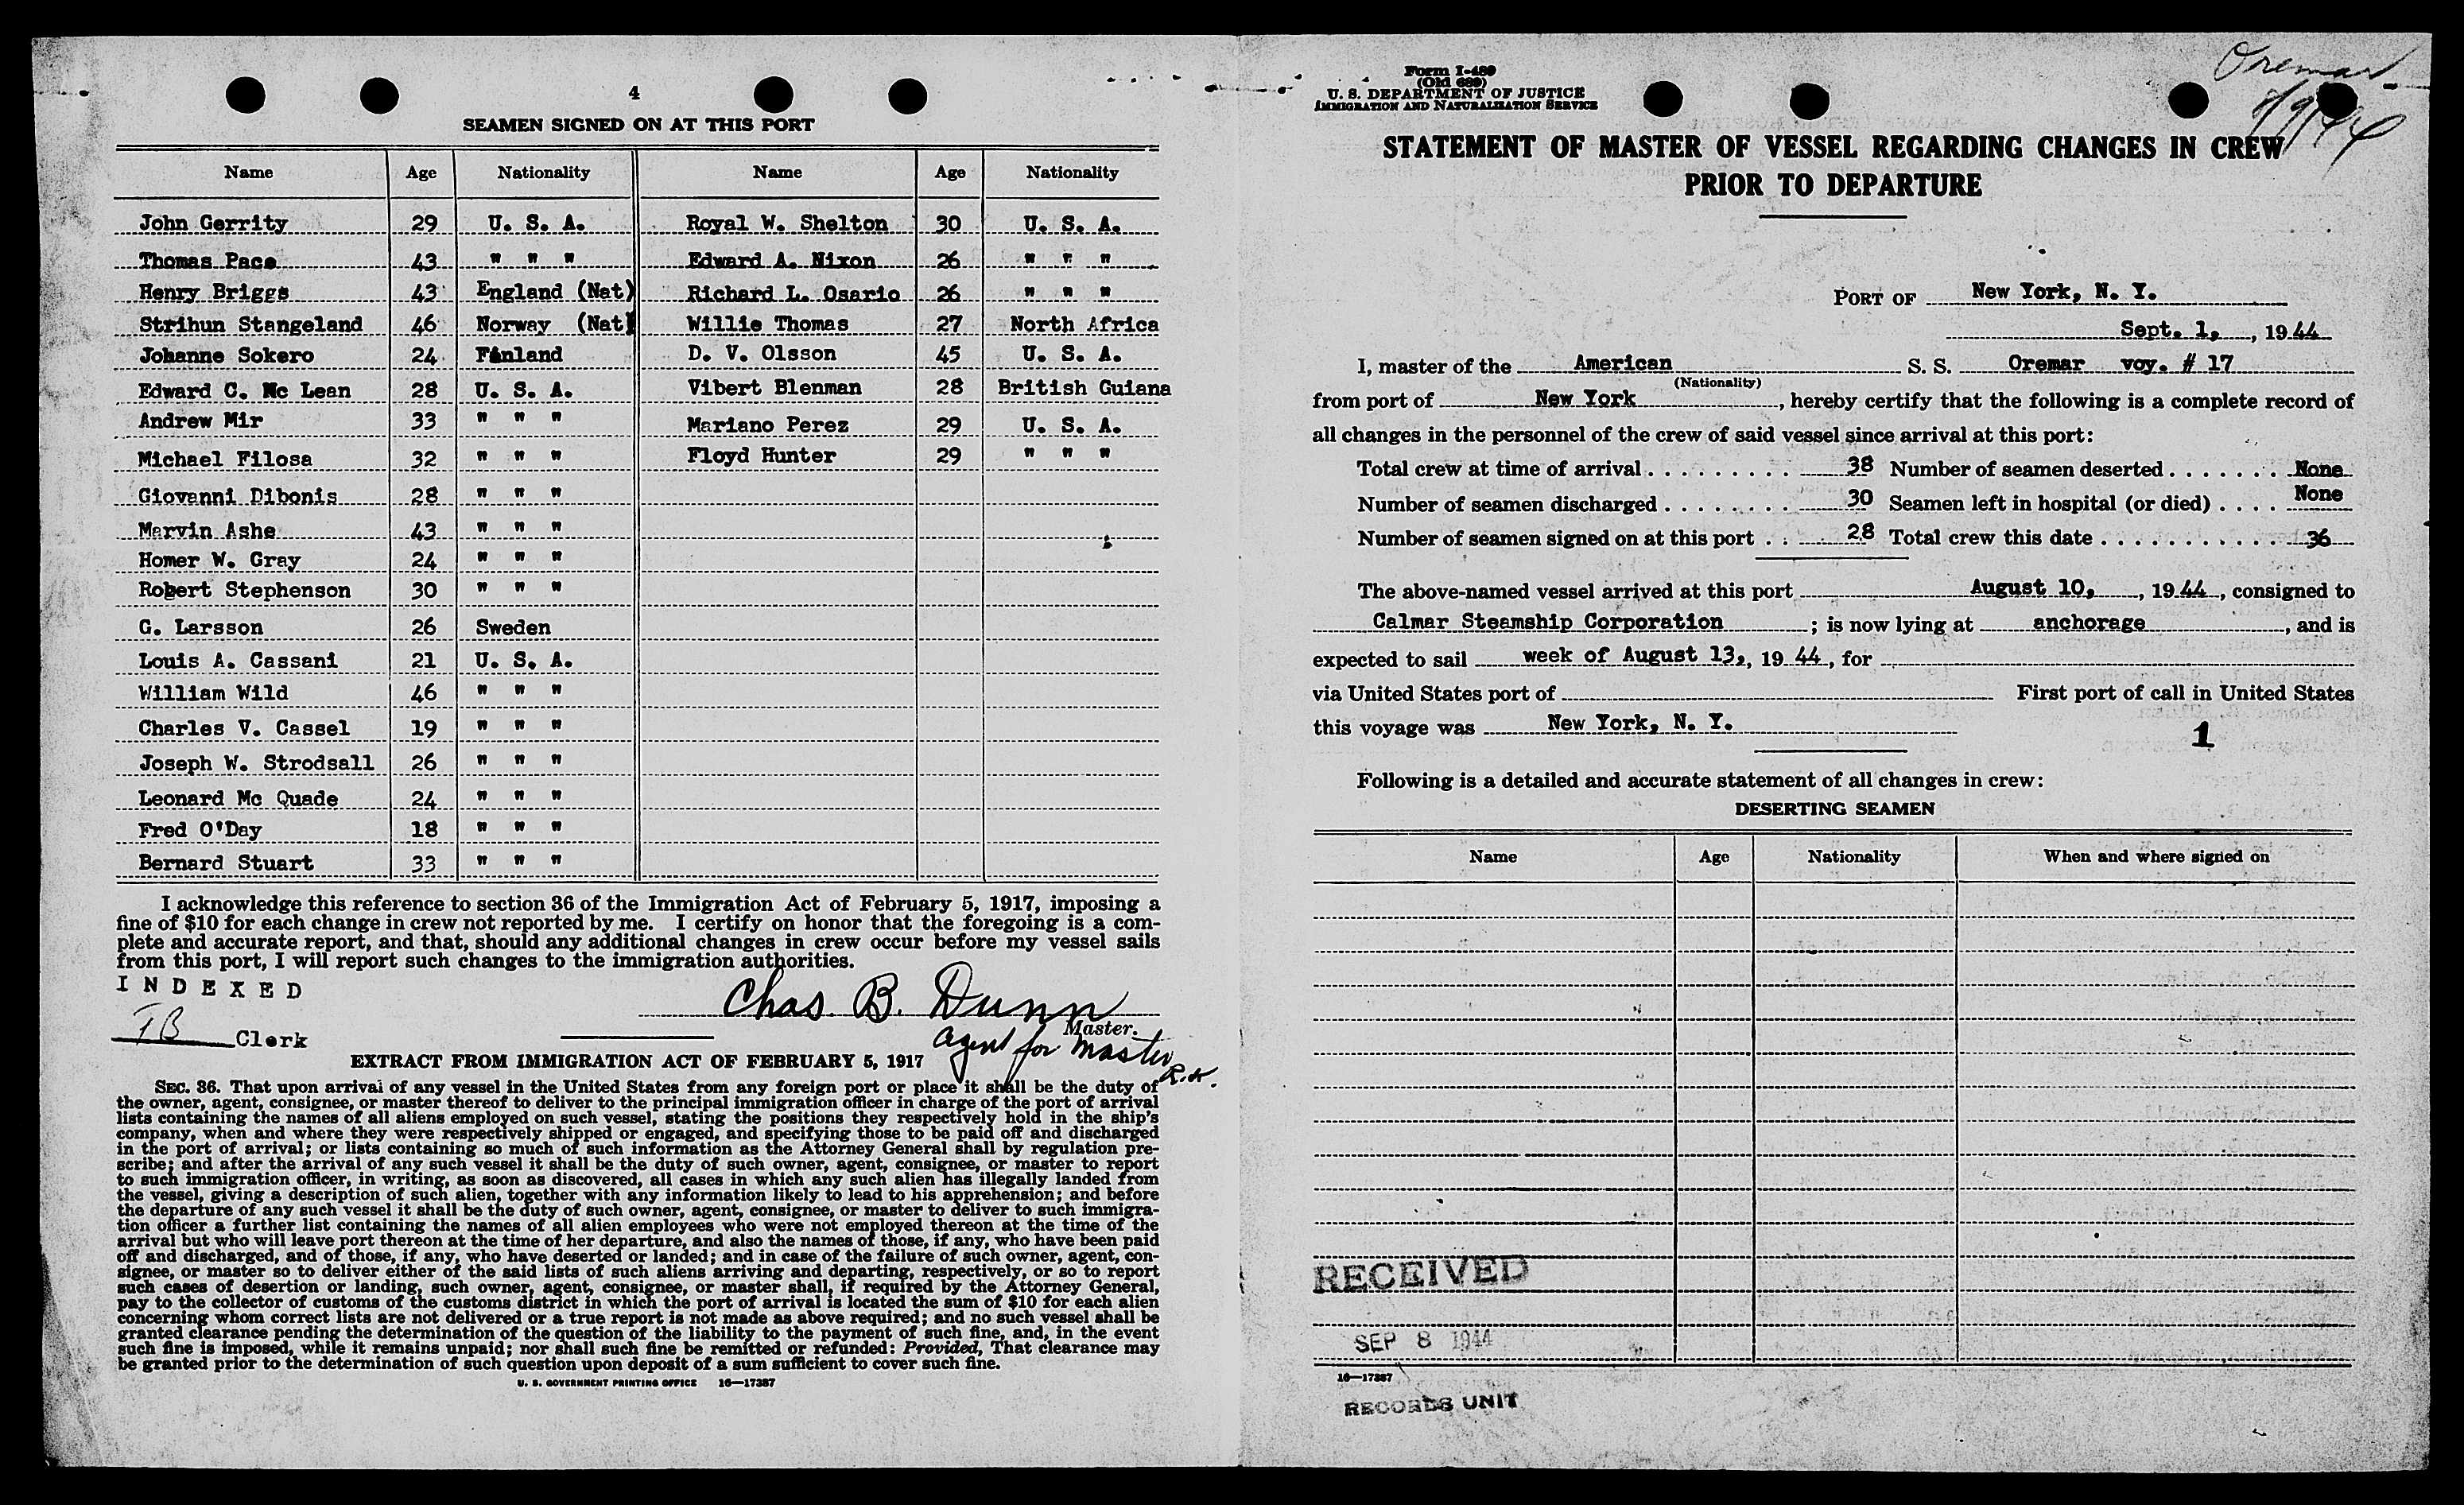 4
SEAMEN SIGNED ON AT THIS PORT
Name Age Nationality Name Age Nationality
John Gerrity 29 U. S. A. Royal W. Shelton 30 U. S. A.
Thomas Pace 43 " " " Edward A. Nixon 26 " " "
Henry Briggs 43 England (Nat) Richard L. Osario 26 " " "
Strihun Stangeland 46 Norway (Nat) Willie Thomas 27 North Africa
Johanne Sokero 24 Finland D. V. Olsson 45 U. S. A.
Edward C. Mc Lean 28 U. S. A. Vibert Blenman 28 British Guiana
Andrew Mir 33 " " " Mariano Perez 29 U. S. A.
Michael Filosa 32 " " " Floyd Hunter 29 " " "
Giovanni Dibonis 28 " " "
Marvin Ashe 43 " " "
Homer W. Gray 24 " " "
Robert Stephenson 30 " " "
G. Larsson 26 Sweden
Louis A. Cassani 21 U. S. A.
William Wild 46 " " "
Charles V. Cassel 19 " " "
Joseph W. Strodsall 26 " " "
Leonard Mc Quade 24 " " "
Fred O'Day 18 " " "
Bernard Stuart 33 " " "
I acknowledge this reference to section 36 of the Immigration Act of February 5, 1917, imposing a
fine of $10 for each change in crew not reported by me. I certify on honor that the foregoing is a com-
plete and accurate report, and that, should any additional changes in crew occur before my vessel sails
from this port, I will report such changes to the immigration authorities.
INDEXED
Chas. B. Dunn
Master.
JB Clerk
agent for master
R.H.
EXTRACT FROM IMMIGRATION ACT OF FEBRUARY 5, 1917
SEC. 36. That upon arrival of any vessel in the United States from any foreign port or place it shall be the duty of
the owner, agent, consignee, or master thereof to deliver to the principal immigration officer in charge of the port of arrival
lists containing the names of all aliens employed on such vessel, stating the positions they respectively hold in the ship's
company, when and where they were respectively shipped or engaged, and specifying those to be paid off and discharged
in the port of arrival; or lists containing so much of such information as the Attorney General shall by regulation pre-
scribe; and after the arrival of any such vessel it shall be the duty of such owner, agent, consignee, or master to report
to such immigration officer, in writing, as soon as discovered, all cases in which any such alien has illegally landed from
the vessel, giving a description of such alien, together with any information likely to lead to his apprehension; and before
the departure of any such vessel it shall be the duty of such owner, agent, consignee, or master to deliver to such immigra-
tion officer a further list containing the names of all alien employees who were not employed thereon at the time of the
arrival but who will leave port thereon at the time of her departure, and also the names of those, if any, who have been paid
off and discharged, and of those, if any, who have deserted or landed; and in case of the failure of such owner, agent, con-
signee, or master so to deliver either of the said lists of such aliens arriving and departing, respectively, or so to report
such cases of desertion or landing, such owner, agent, consignee, or master shall, if required by the Attorney General,
pay to the collector of customs of the customs district in which the port of arrival is located the sum of $10 for each alien
concerning whom correct lists are not delivered or a true report is not made as above required; and no such vessel shall be
granted clearance pending the determination of the question of the liability to the payment of such fine, and, in the event
such fine is imposed, while it remains unpaid; nor shall such fine be remitted or refunded: Provided, That clearance may
be granted prior to the determination of such question upon deposit of a sum sufficient to cover such fine.
U. S. GOVERNMENT PRINTING OFFICE 16—17387
Form I-489
(Old 689)
U. S. DEPARTMENT OF JUSTICE
IMMIGRATION AND NATURALIZATION SERVICE
Oremar
9/9/44
STATEMENT OF MASTER OF VESSEL REGARDING CHANGES IN CREW
PRIOR TO DEPARTURE
PORT OF New York, N. Y.
Sept. 1, , 1944
I, master of the American S. S. Oremar voy. # 17
(Nationality)
from port of New York , hereby certify that the following is a complete record of
all changes in the personnel of the crew of said vessel since arrival at this port:
Total crew at time of arrival . . . . . . . . . 38 Number of seamen deserted . . . . . . . None
Number of seamen discharged . . . . . . . . 30 Seamen left in hospital (or died) . . . . None
Number of seamen signed on at this port . . 28 Total crew this date . . . . . . . . . . . . 36
The above-named vessel arrived at this port August 10, , 1944 , consigned to
Calmar Steamship Corporation ; is now lying at anchorage , and is
expected to sail week of August 13, , 1944 , for
via United States port of First port of call in United States
this voyage was New York, N. Y.
1
Following is a detailed and accurate statement of all changes in crew:
DESERTING SEAMEN
Name Age Nationality When and where signed on
RECEIVED
SEP 8 1944
16—17387
RECORDS UNIT